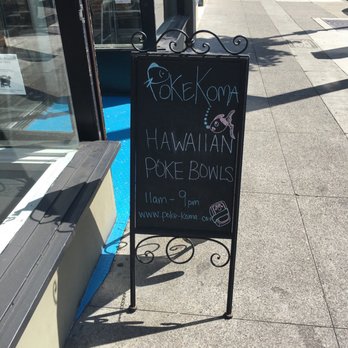 POKEKOMA
HAWAIIAN
POKE BOWLS
11am - 9pm
www.poke-koma.com